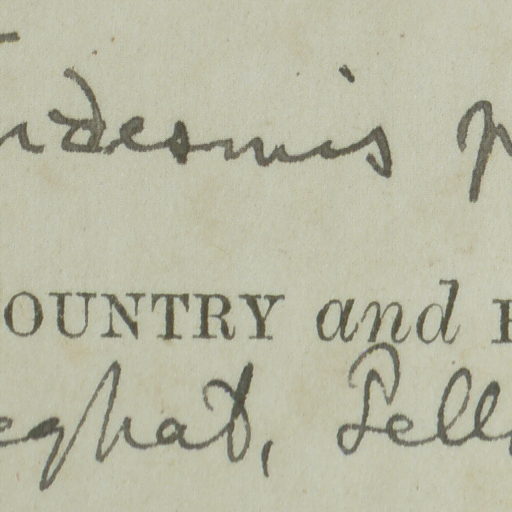 ndesmis p
OUNTRY and
eghat, Pell